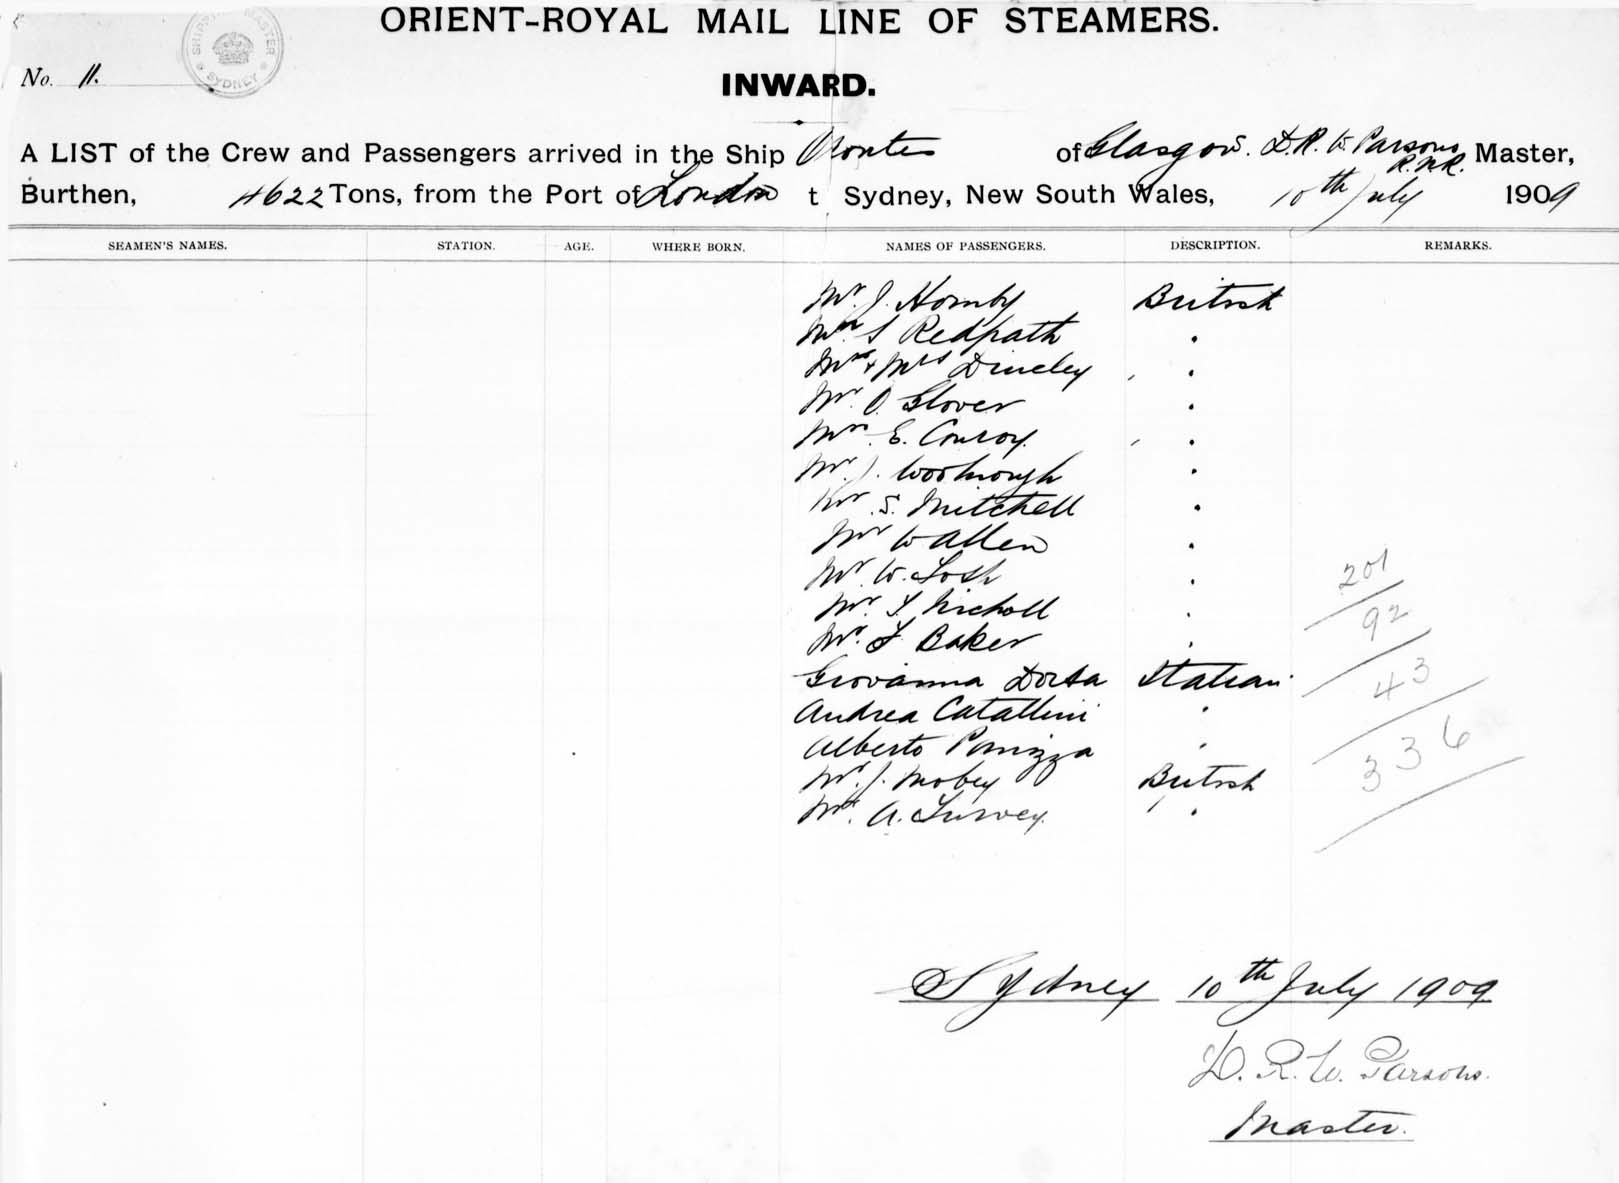 ORIENT-ROYAL MAIL LINE OF STEAMERS.
SYDNEY
No. 11.
INWARD.
A LIST of the Crew and Passengers arrived in the Ship Orontes of Glasgow. D.R.W. Parsons R.N.R. Master,
Burthen, 4622 Tons, from the Port of London t Sydney, New South Wales, 10th July 1909
SEAMEN'S NAMES. STATION. AGE. WHERE BORN. NAMES OF PASSENGERS. DESCRIPTION. REMARKS.
Mr. J. Hornby British
S Redpath "
Mr & Mrs Dineley "
Mr. O. Glover "
Mrs. E. Conroy. "
Mr. J. "
Mr. S. Mitchell "
Mr W Allen "
Mr. W. Losh "
Mr. Nicholl "
Mr. Baker "
Giovanna Dorsa Italian
Andrea Catallini "
Alberto Panizza "
Mr. J. Mobey British
Mr. A. "
201
92
43
336
Sydney 10th July 1909
D. R. W. Parsons.
Master.